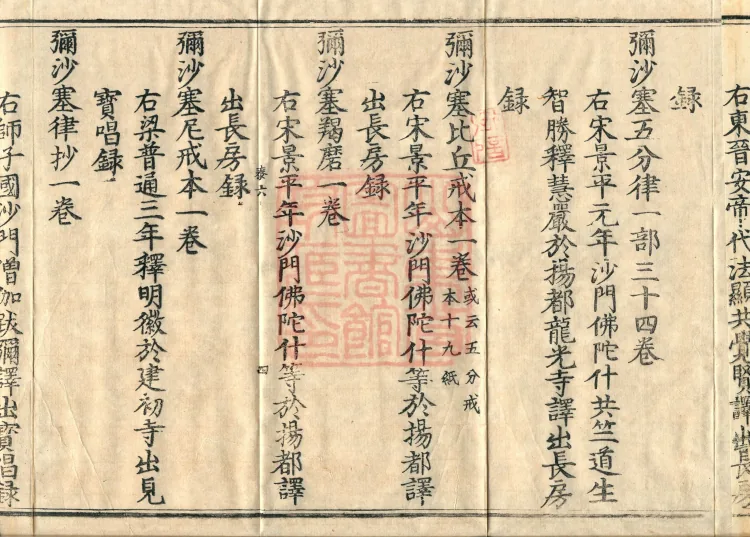 右東晉安帝代法顯共覺賢譯出長房
録
彌沙塞五分律一部三十四卷
右宋景平元年沙門佛陀什共竺道生
智勝釋慧嚴於揚都龍光寺譯出長房
録
彌沙塞比丘戒本一卷 或云五分戒
本十九紙
右宋景平年沙門佛陀什等於揚都譯
出長房録
彌沙塞羯磨一卷
右宋景平年沙門佛陀什等於揚都譯
卷六 四
出長房録
彌沙塞尼戒本一卷
右梁普通三年釋明徽於建初寺出見
寶唱録
彌沙塞律抄一卷
右師子國沙門僧伽跋彌譯出寶唱録